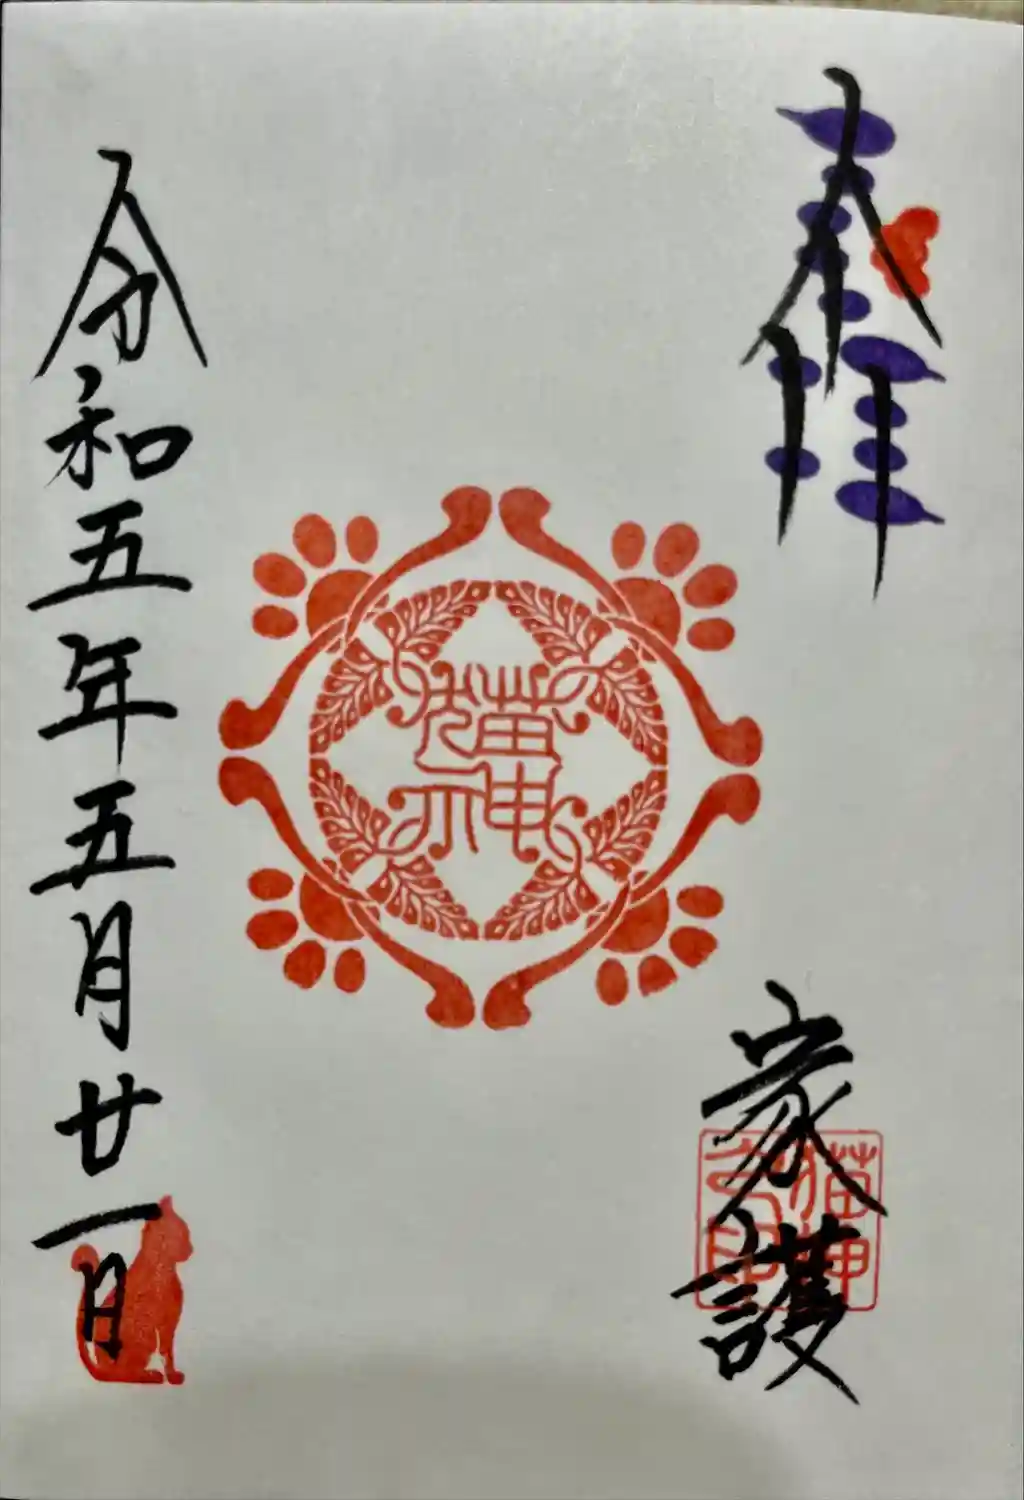 奉拝
家護
猫神
猫神
令和五年五月廿一日